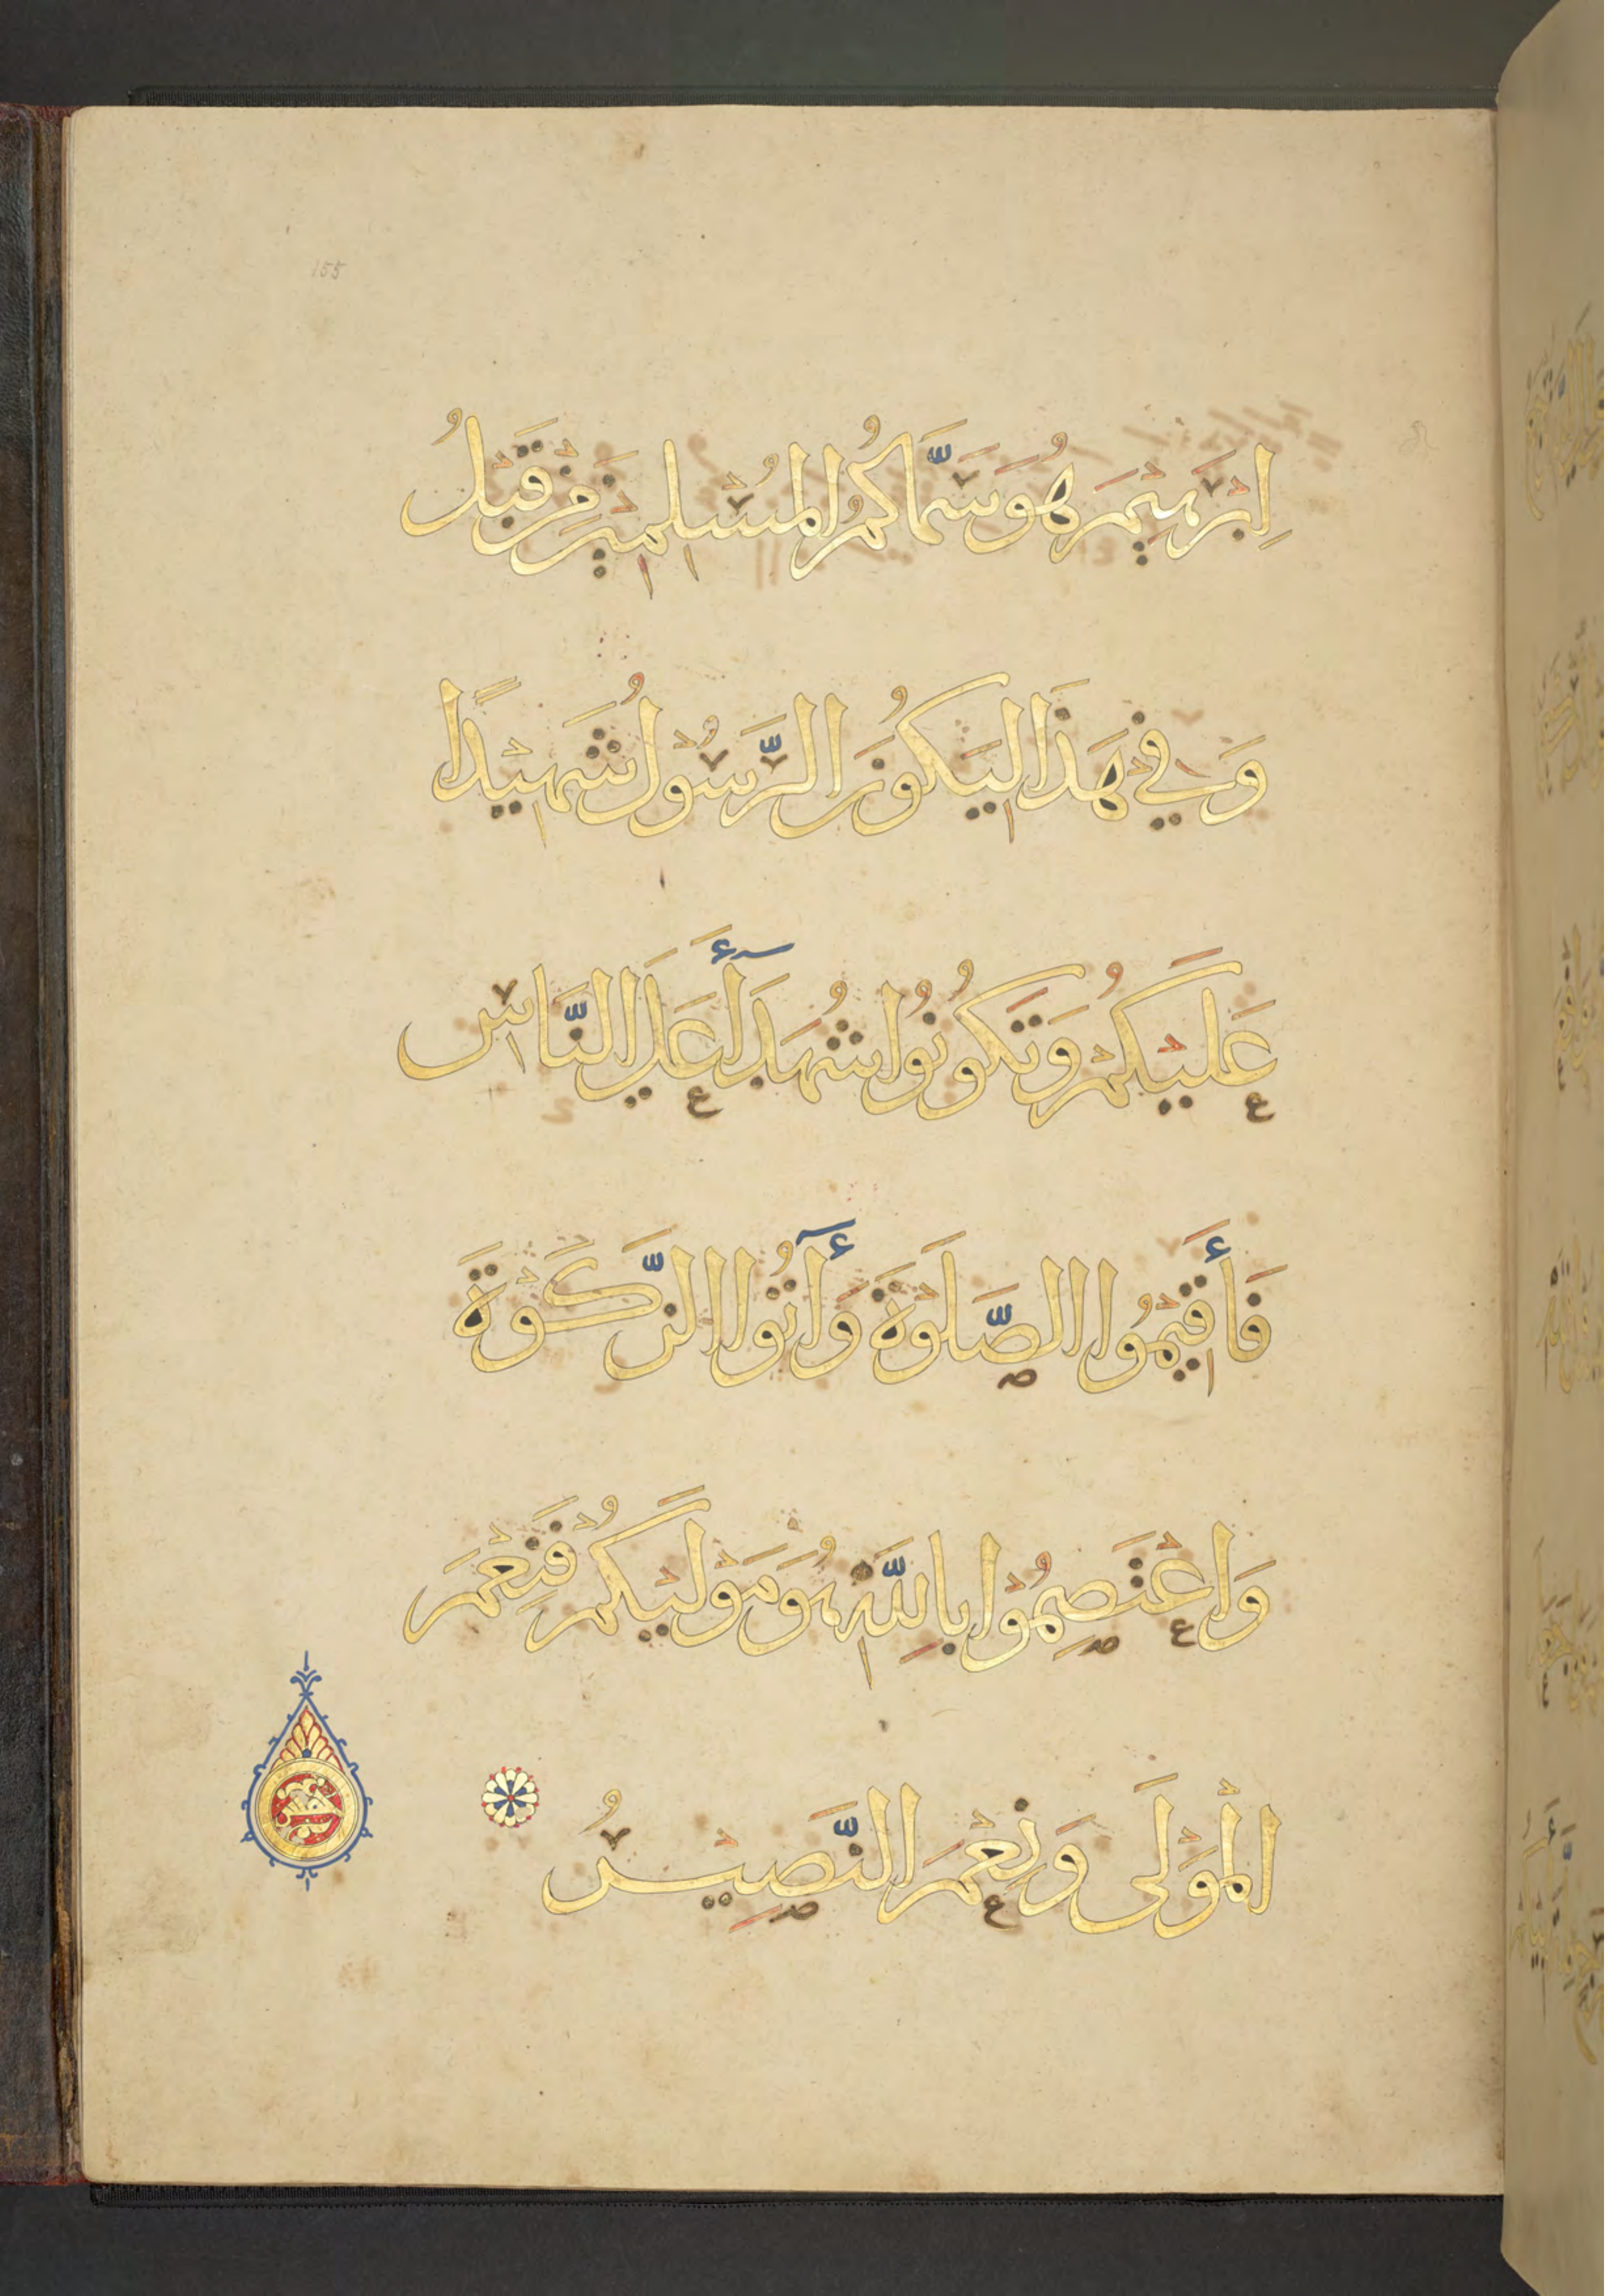 155
إِبْرَهِيْمَ هُوَ سَمَّاكُمُ الْمُسْلِمِيْنَ مِنْ قَبْلُ
وَفِي هَذَا لِيَكُوْنَ الرَّسُوْلُ شَهِيْدًا
عَلَيْكُمْ وَتَكُونُوا شُهَدَآءَ عَلَى النَّاسِ
فَأَقِيْمُوا الصَّلَوٰةَ وَآتُوا الزَّكَوٰةَ
وَاعْتَصِمُوْا بِاللَّهِ هُوَ مَوْلَيٰكُمْ فَنِعْمَ
الْمَوْلَى وَنِعْمَ النَّصِيْرُ